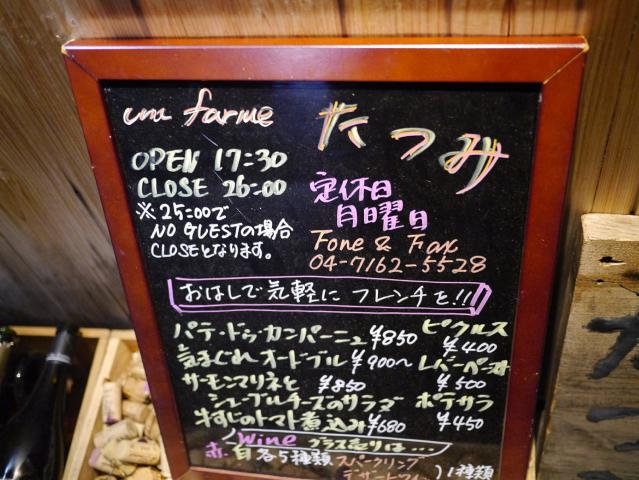 una farme
たつみ
OPEN 17:30
CLOSE 26:00
※25:00で
NO GUESTの場合
CLOSEとなります。
定休日
月曜日
Fone & Fax
04-7162-5528
おはしで気軽に フレンチを!!
パテ・ドゥ・カンパーニュ ¥850
気まぐれオードブル ¥900〜
サーモンマリネと ¥850
シェーブルチーズのサラダ
牛すじのトマト煮込み ¥680
ピクルス
¥400
レバーペースト
¥500
ポテサラ
¥450
Wine グラス売りは…
赤・白 各5種類 スパークリング
デザートワイン )1種類